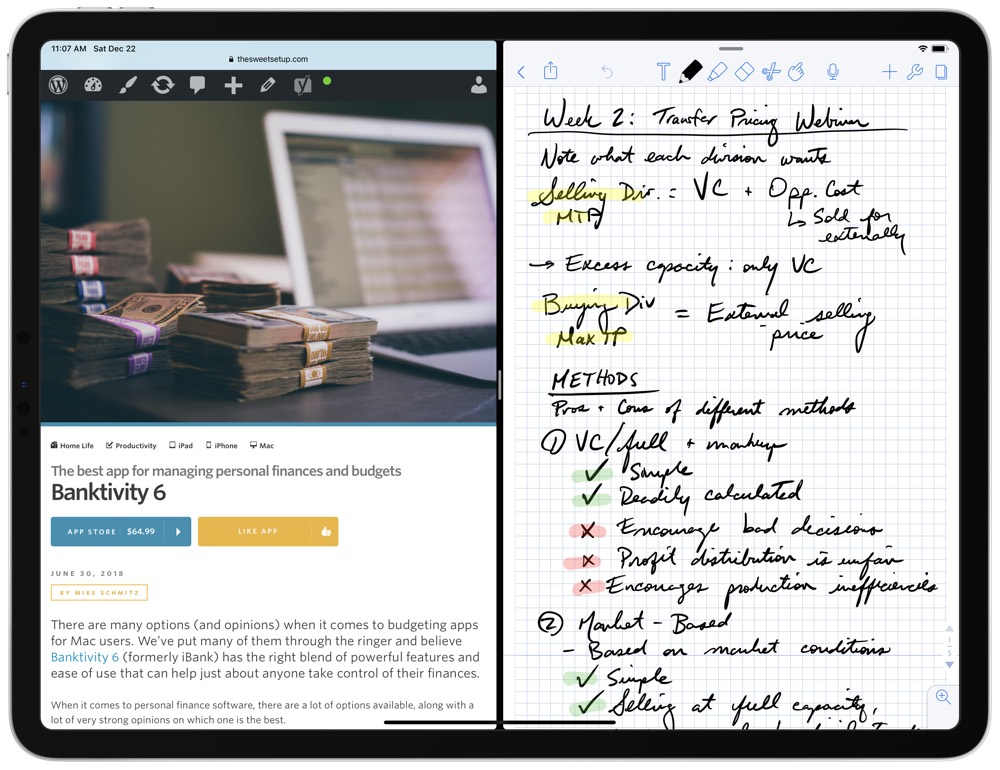 11:07 AM Sat Dec 22
thesweetsetup.com
Home Life Productivity iPad iPhone Mac
The best app for managing personal finances and budgets
Banktivity 6
APP STORE $64.99
LIKE APP
JUNE 30, 2018
BY MIKE SCHMITZ
There are many options (and opinions) when it comes to budgeting apps
for Mac users. We've put many of them through the ringer and believe
Banktivity 6 (formerly iBank) has the right blend of powerful features and
ease of use that can help just about anyone take control of their finances.
When it comes to personal finance software, there are a lot of options available, along with a
lot of very strong opinions on which one is the best.
Week 2: Transfer Pricing Webinar
Note what each division wants
Selling Div. = VC + Opp. Cost
MTP
↳ Sold for
externally
→ Excess capacity: only VC
Buying Div = External selling
price
Max TP
METHODS
Pros + Cons of different methods
① VC/full + markup
✓ Simple
✓ Readily calculated
X Encourage bad decisions
X Profit distribution is unfair
X Encourages production inefficiencies
② Market-Based
- Based on market conditions
✓ Simple
✓ Selling at full capacity,